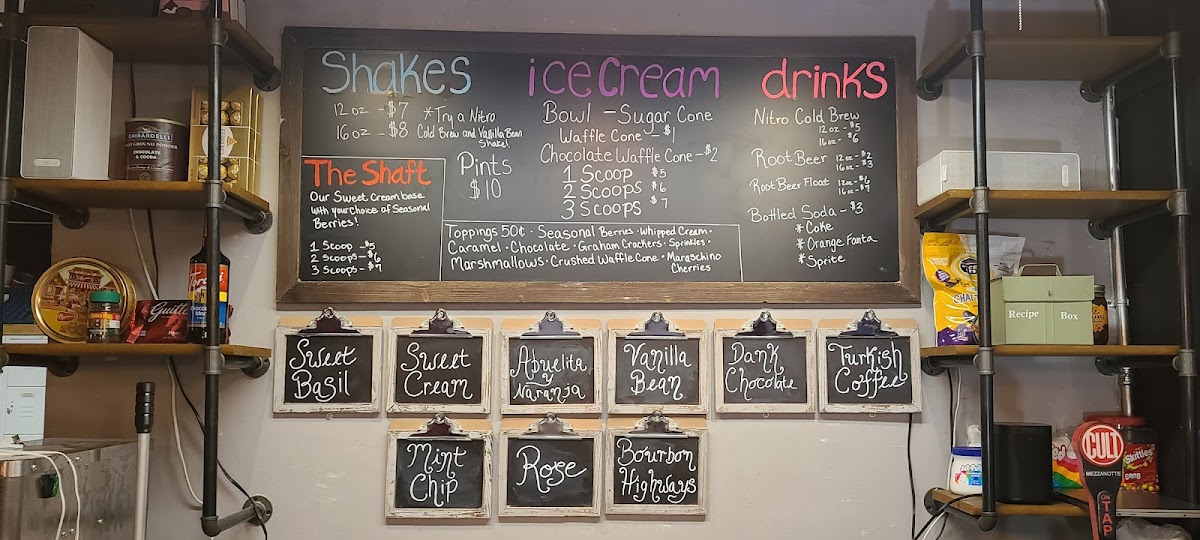 Shakes
12 oz - $7
16 oz - $8
*Try a Nitro
Cold Brew and Vanilla Bean
Shake!
The Shaft
Our Sweet Cream base
with your choice of Seasonal
Berries!
1 Scoop - $5
2 Scoops - $6
3 Scoops - $7
Pints
$10
ice cream
Bowl - Sugar Cone
Waffle Cone - $1
Chocolate Waffle Cone - $2
1 Scoop $5
2 Scoops $6
3 Scoops $7
Toppings 50¢ · Seasonal Berries · Whipped Cream ·
Caramel · Chocolate · Graham Crackers · Sprinkles ·
Marshmallows · Crushed Waffle Cone · Maraschino
Cherries
drinks
Nitro Cold Brew
12 oz - $5
16 oz - $6
Root Beer 12 oz - $2
16 oz - $3
Root Beer Float 12 oz - $6
16 oz - $7
Bottled Soda - $3
* Coke
* Orange Fanta
* Sprite
Sweet
Basil
Sweet
Cream
Abuelita
y
Naranja
Vanilla
Bean
Dark
Chocolate
Turkish
Coffee
Mint
Chip
Rose
Bourbon
Highways
GHIRARDELLI
CHOCOLATE
& COCOA
Torani
CHAI
Recipe Box
Skittles
CULT
MEZZANOTTE
ON
TAP